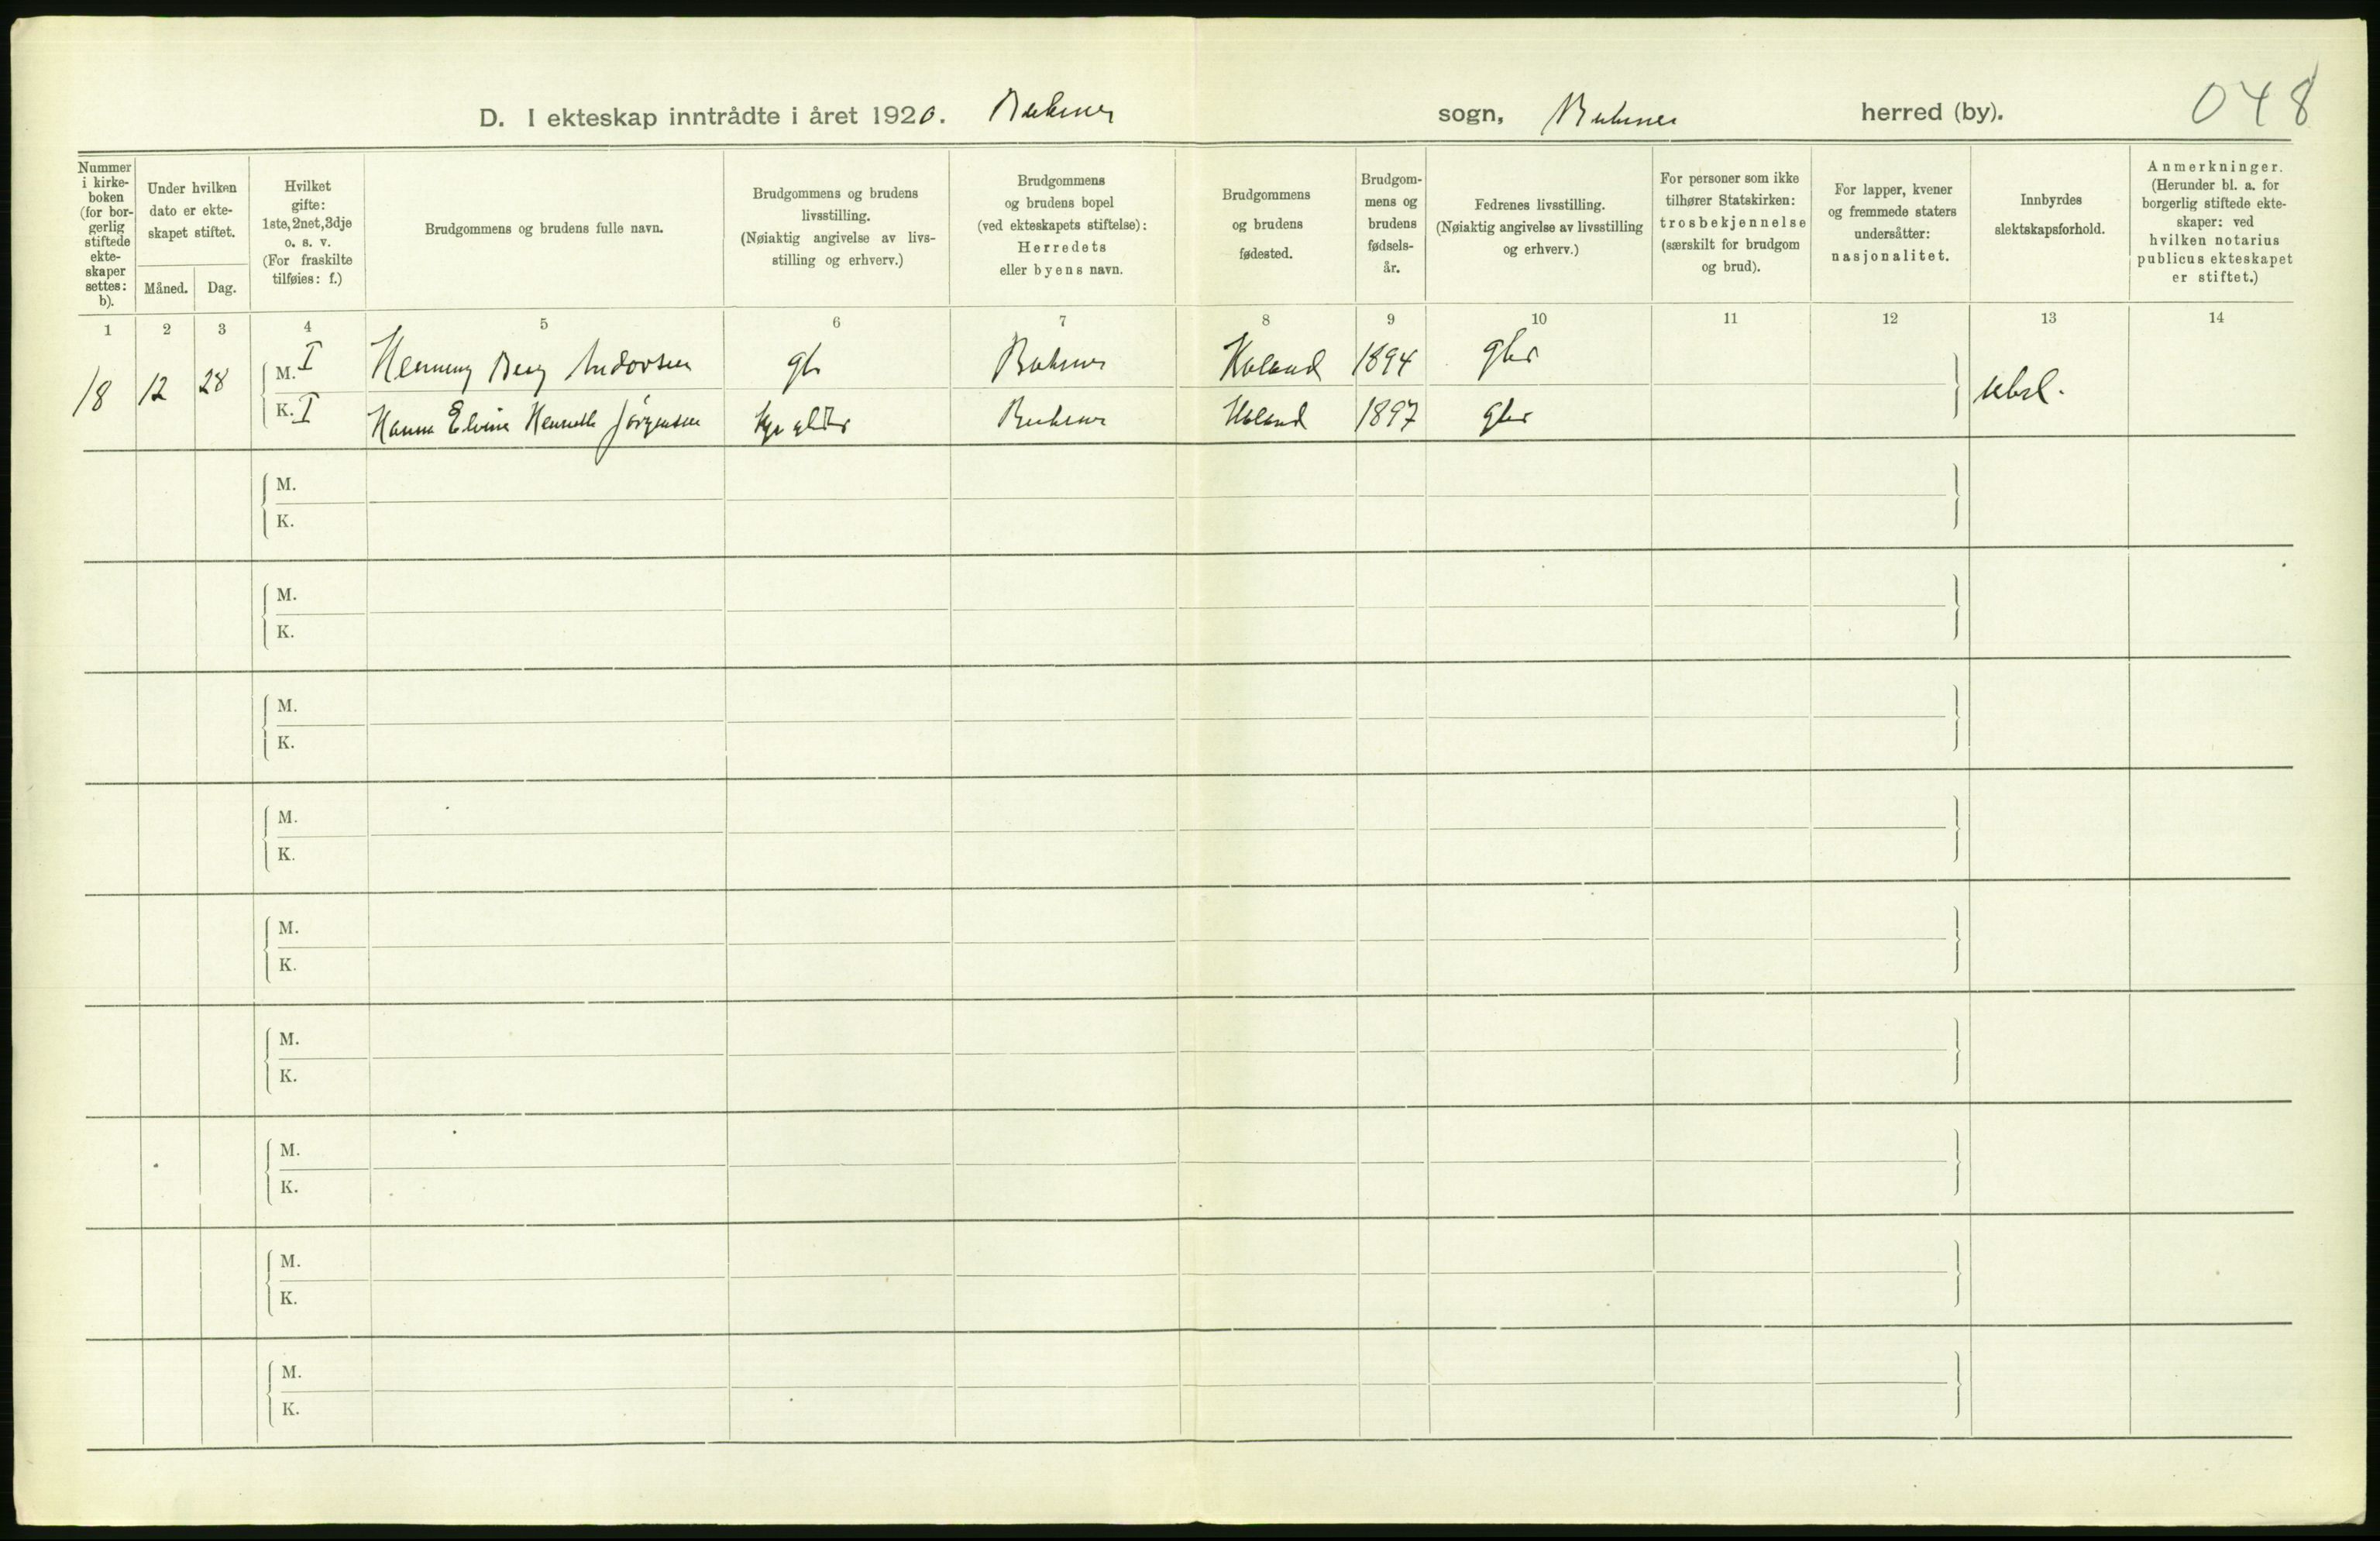 048
D. I ekteskap inntrådte i året 1920. Buksnes sogn, Buksnes herred (by).
Nummer i kirke-boken (for bor-gerlig stiftede ekte-skaper settes: b).
Under hvilken dato er ekte-skapet stiftet.
Måned. Dag.
Hvilket gifte: 1ste, 2net, 3dje o. s. v. (For fraskilte tilføies: f.)
Brudgommens og brudens fulle navn.
Brudgommens og brudens livsstilling. (Nøiaktig angivelse av livs-stilling og erhverv.)
Brudgommens og brudens bopel (ved ekteskapets stiftelse): Herredets eller byens navn.
Brudgommens og brudens fødested.
Brudgom-mens og brudens fødsels-år.
Fedrenes livsstilling. (Nøiaktig angivelse av livsstilling og erhverv.)
For personer som ikke tilhører Statskirken: trosbekjennelse (særskilt for brudgom og brud).
For lapper, kvener og fremmede staters undersåtter: nasjonalitet.
Innbyrdes slektskapsforhold.
Anmerkninger. (Herunder bl. a. for borgerlig stiftede ekte-skaper: ved hvilken notarius publicus ekteskapet er stiftet.)
1 2 3 4 5 6 7 8 9 10 11 12 13 14
18 12 28 M. I Henning Berg Andorsen Buksnes Holand 1894 gbr
K. I Hanna Elvine Henrette Jörgensen Buksnes Holand 1897 gbr
ubsl.
M.
K.
M.
K.
M.
K.
M.
K.
M.
K.
M.
K.
M.
K.
M.
K.
M.
K.